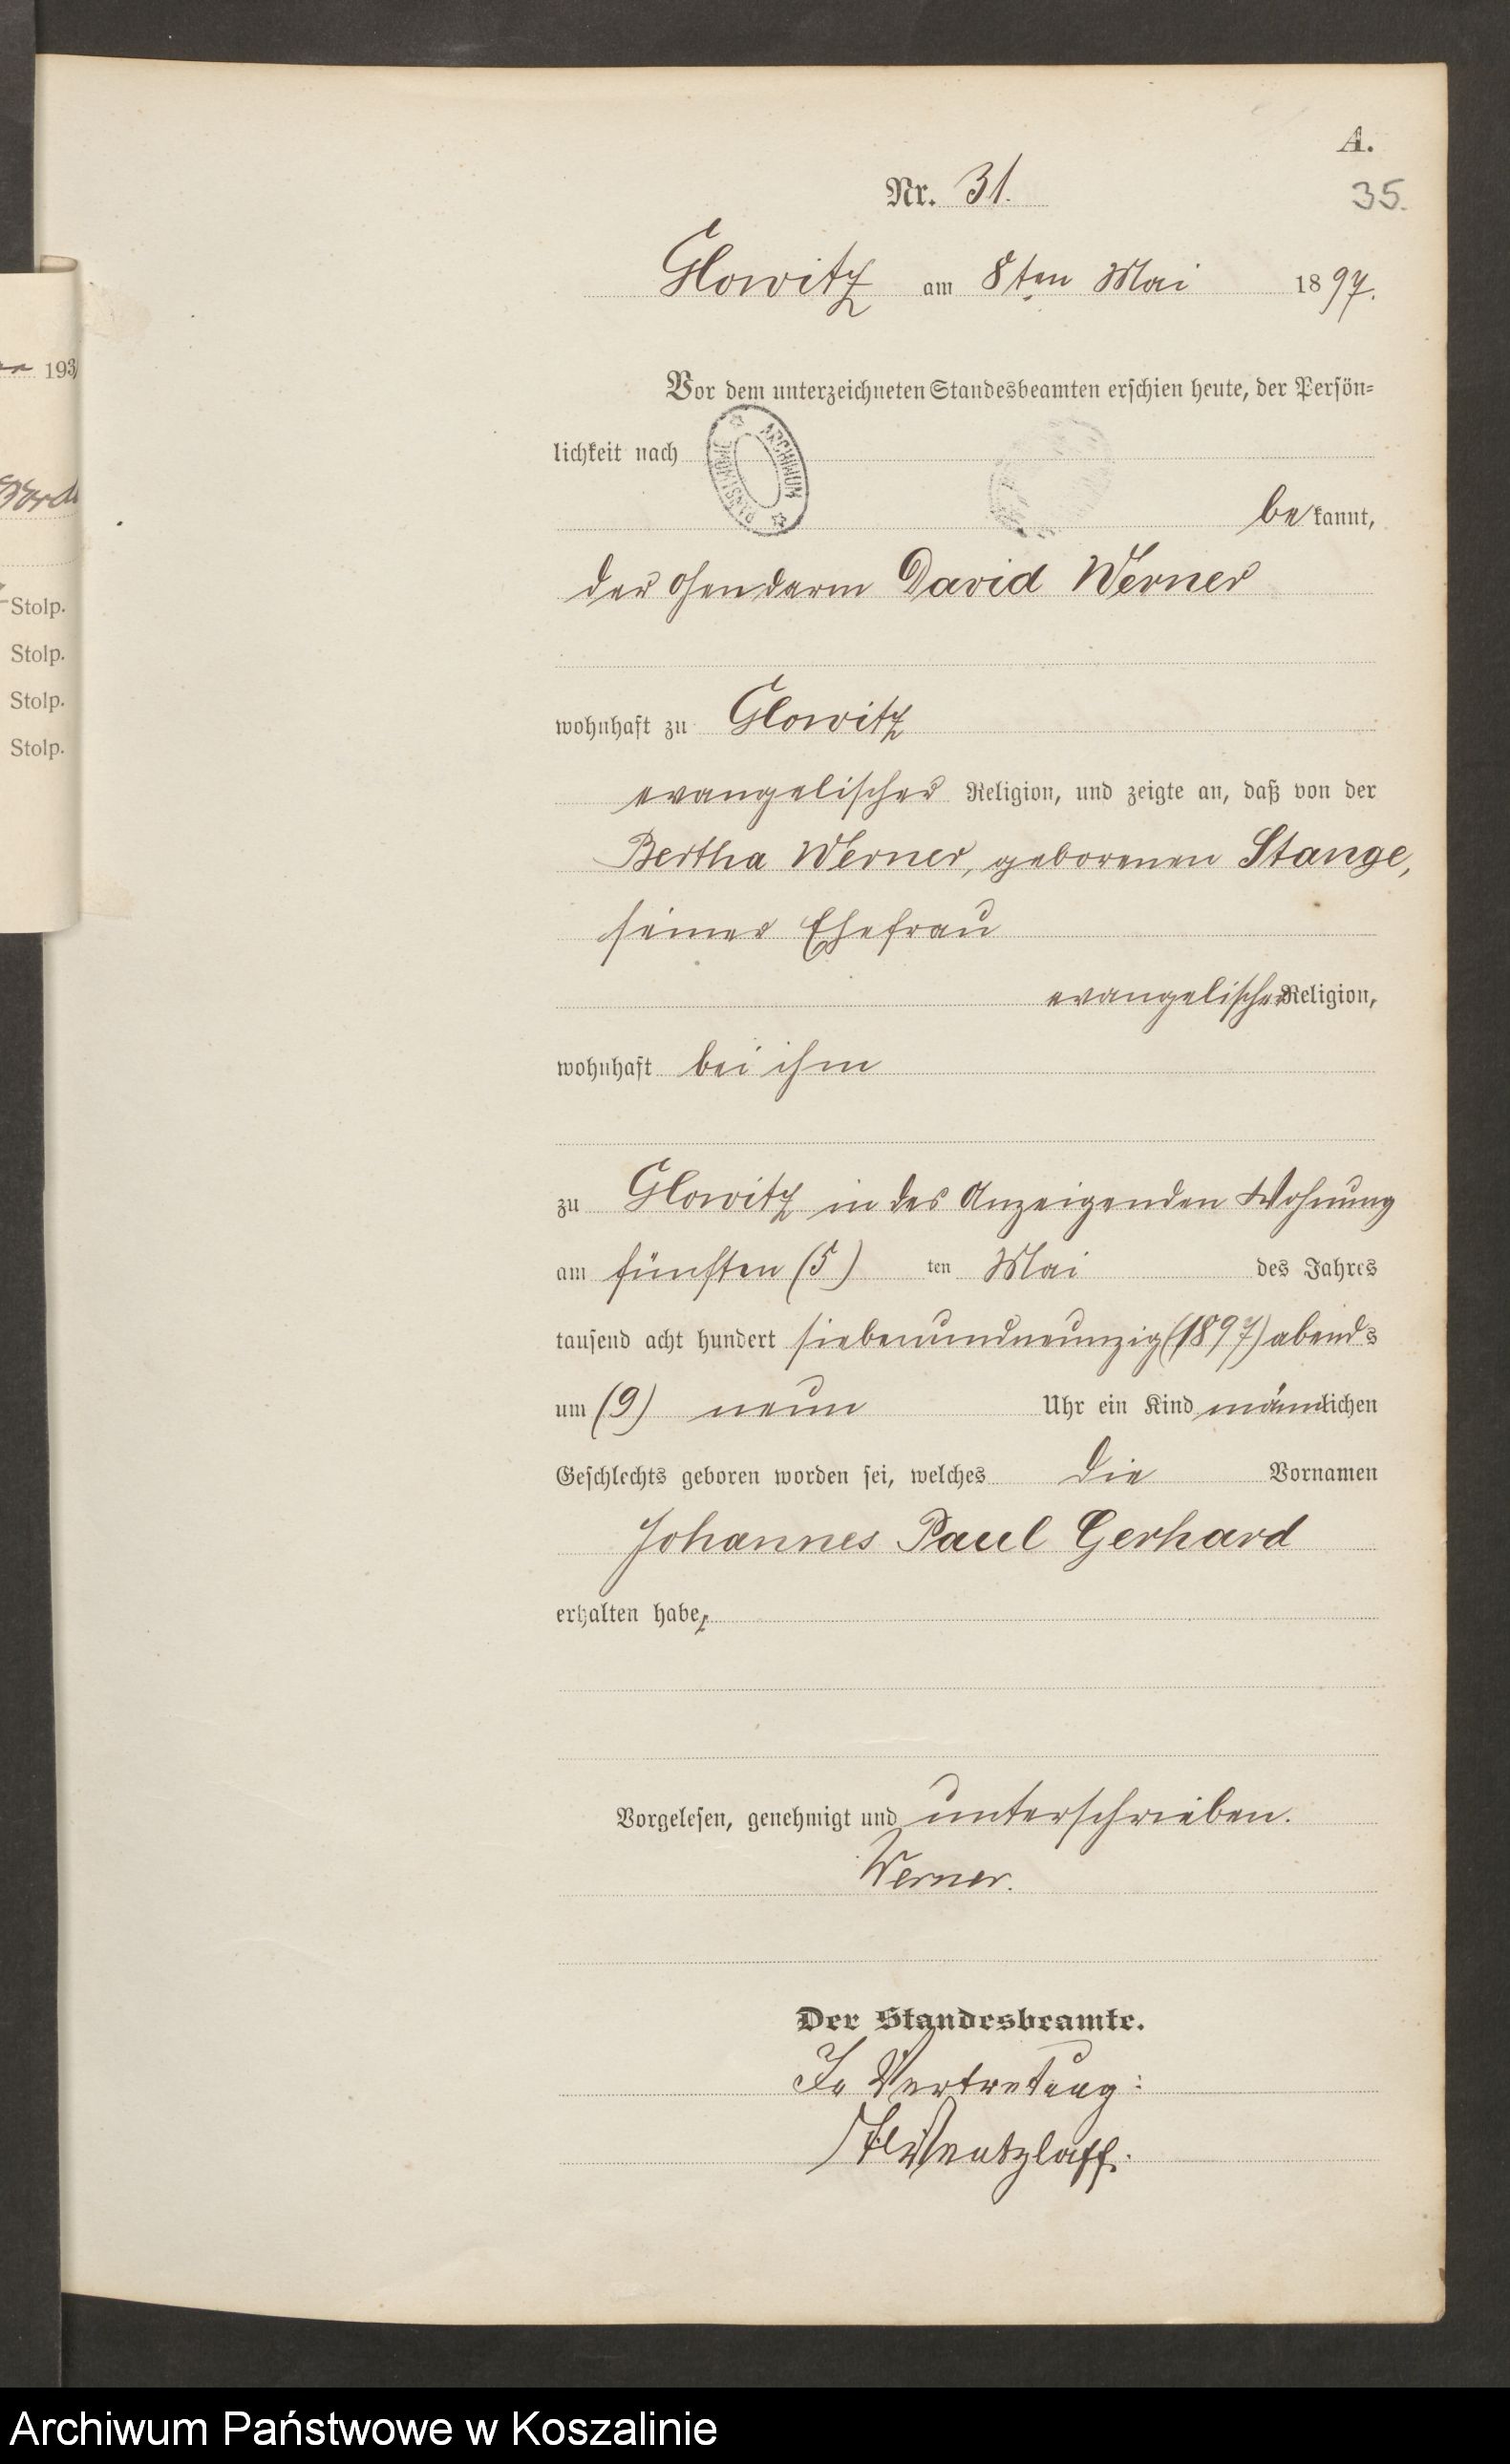 A.
Nr. 31.
35.
Glowitz am 8ten Mai 1897.
193
Vor dem unterzeichneten Standesbeamten erschien heute, der Persön=
lichkeit nach
ARCHIWUM PAŃSTWOWE
bekannt,
der Gendarm David Werner
Stolp.
Stolp.
Stolp.
Stolp.
wohnhaft zu Glowitz
evangelischer Religion, und zeigte an, daß von der
Bertha Werner, geborenen Stange,
seiner Ehefrau
evangelischer Religion,
wohnhaft bei ihm
zu Glowitz in des Anzeigenden Wohnung
am fünften (5) ten Mai des Jahres
tausend acht hundert siebenundneunzig (1897) abends
um (9) neun Uhr ein Kind männlichen
Geschlechts geboren worden sei, welches die Vornamen
Johannes Paul Gerhard
erhalten habe,
Vorgelesen, genehmigt und unterschrieben.
Werner.
Der Standesbeamte.
In Vertretung:
Wentzlaff.
Archiwum Państwowe w Koszalinie